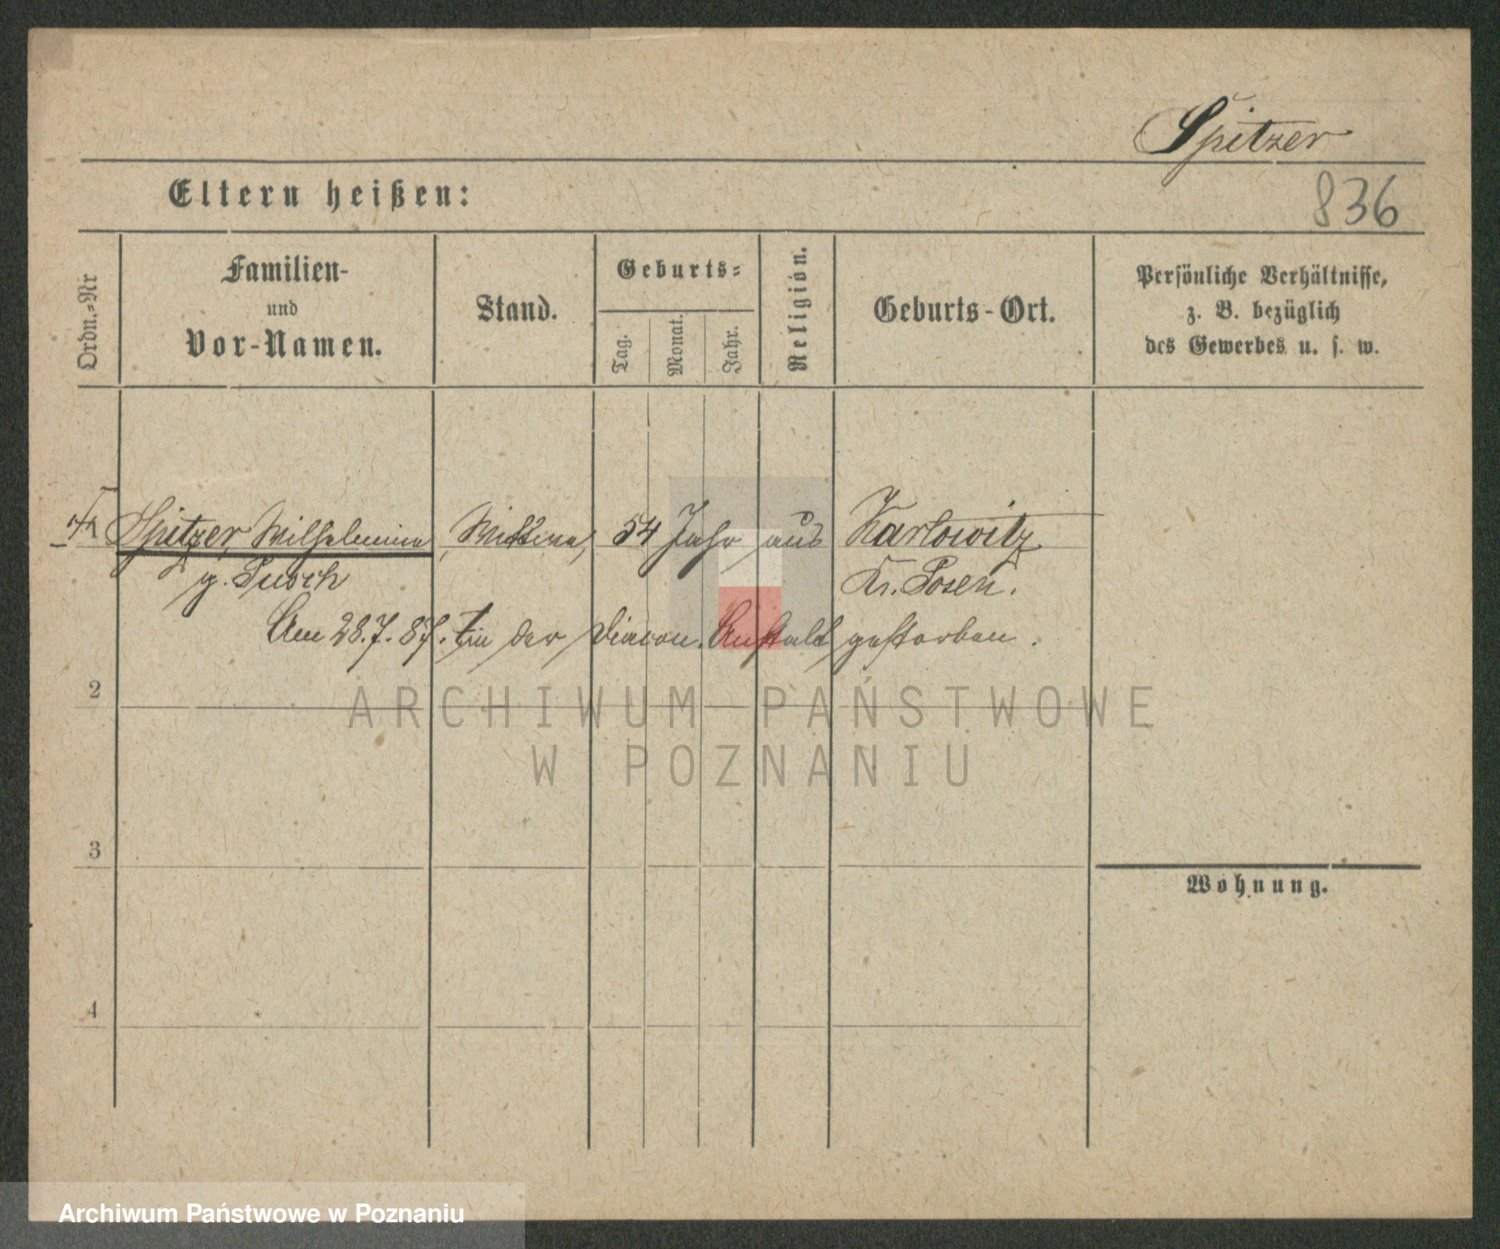 Spitzer
Eltern heißen:
836
Ordn.-Nr
Familien-
und
Vor-Namen.
Stand.
Geburts-
Tag.
Monat.
Jahr.
Religion.
Geburts-Ort.
Persönliche Verhältnisse,
z. B. bezüglich
des Gewerbes u. s. w.
Spitzer, Wilhelmine, Wittwe, 54 Jahr aus Karlowitz
g. Kr. Posen.
Am 28.7.87. in der Diacon. Anstalt gestorben.
2
ARCHIWUM PAŃSTWOWE
W POZNANIU
3
Wohnung.
4
Archiwum Państwowe w Poznaniu